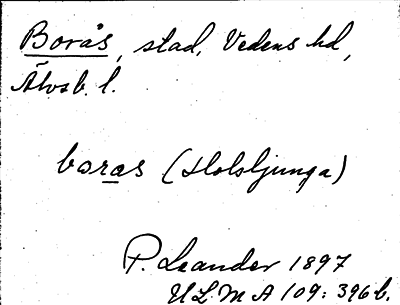 Borås, stad, Vedens hd,
Älvsb. l.
boras (Holsljunga)
P. Leander 1897
ULMA 109: 396 b.